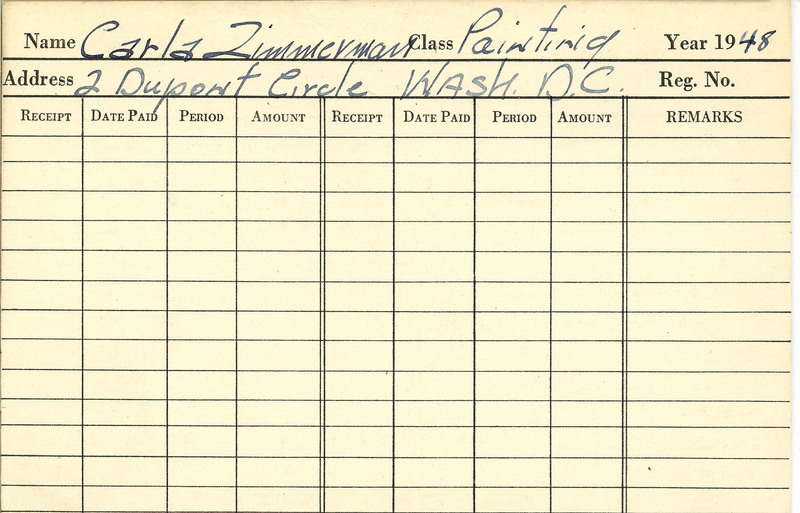 Name Carla Zimmerman Class Painting Year 1948
Address 2 Dupont Circle WASH. D.C. Reg. No.
RECEIPT DATE PAID PERIOD AMOUNT RECEIPT DATE PAID PERIOD AMOUNT REMARKS